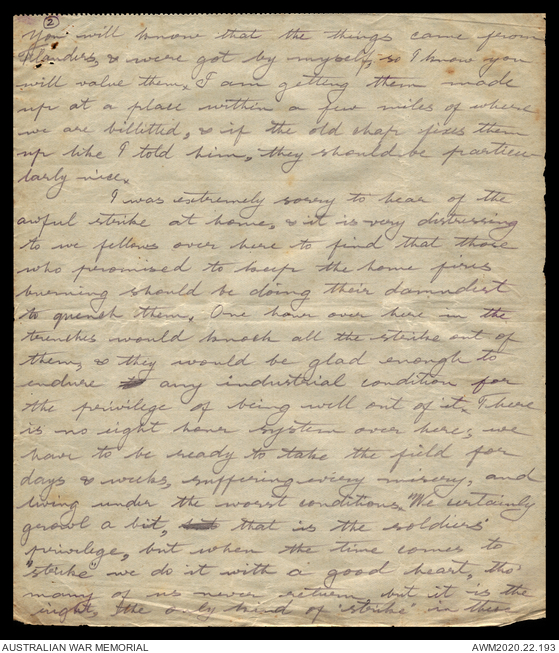 2
You will know that the things came from
Flanders, & were got by myself, so I know you
will value them. I am getting them made
up at a place within a few miles of where
we are billitted, & if the old chap fixes them
up like I told him, they should be particu
larly nice.
I was extremely sorry to hear of the
awful strike at home, & it is very distressing
to we fellows over here to find that those
who promised to keep the home fires
burning should be doing their damndest
to quench them. One hour over here in the
trenches would knock all the strike out of
them, & they would be glad enough to
endure any industrial condition for
the privilege of being well out of it. There
is no eight hour system over here; we
have to be ready to take the field for
days & weeks, suffering every misery, and
living under the worst conditions. We certainly
growl a bit, that is the soldiers'
privilege, but when the time comes to
"strike" we do it with a good heart, tho'
many of us never return, but it is the
right, the only kind of "strike" in these
AUSTRALIAN WAR MEMORIAL
AWM2020.22.193